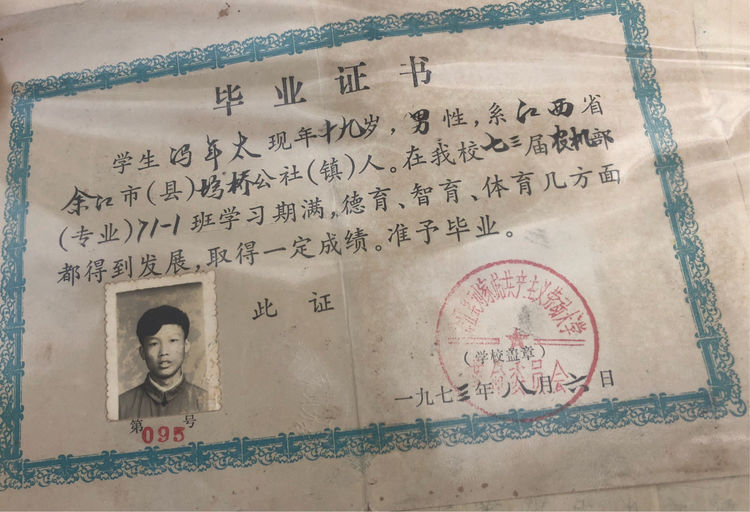 毕业证书
学生冯年太现年十九岁，男性，系江西省
余江市(县)坞桥公社(镇)人。在我校七三届农机部
(专业)71-1班学习期满，德育、智育、体育几方面
都得到发展，取得一定成绩。准予毕业。
此证
共产主义劳动大学
(学校盖章)
革命委员会
一九七三年八月六日
第 号
095